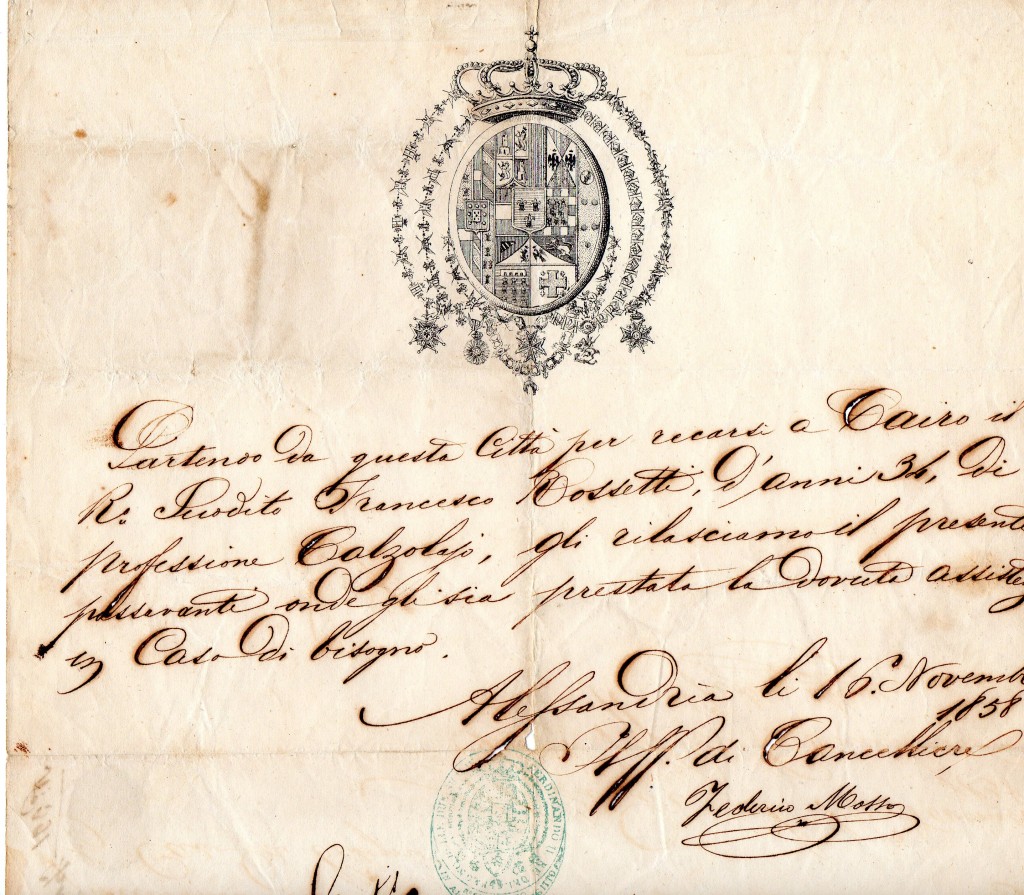 Partendo da questa Città per recarsi a Cairo il
R.o Suddito Francesco Rossetti, d'anni 34, di
professione Calzolajo, gli rilasciamo il presente
passavanti onde gli sia prestata la dovuta assiste
in Caso di bisogno.
Alessandria li 16. Novemb
1858
Aff. di Cancelliere
Federico Mosso
FERDINANDO II